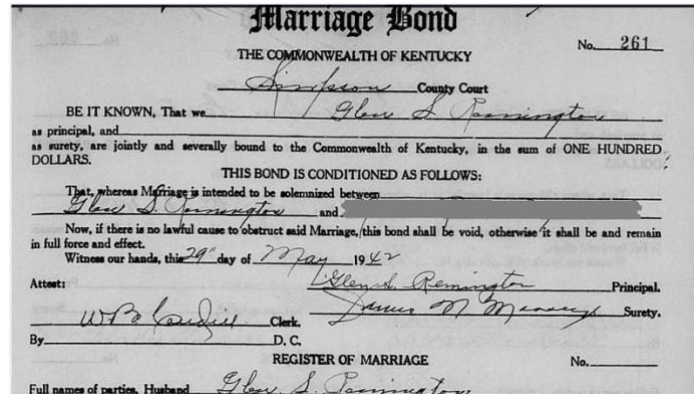 Marriage Bond
No. 261
THE COMMONWEALTH OF KENTUCKY
Simpson County Court
BE IT KNOWN, That we Glen S. Remington
as principal, and
as surety, are jointly and severally bound to the Commonwealth of Kentucky, in the sum of ONE HUNDRED
DOLLARS.
THIS BOND IS CONDITIONED AS FOLLOWS:
That, whereas Marriage is intended to be solemnized between
Glen S. Remington and
Now, if there is no lawful cause to obstruct said Marriage, this bond shall be void, otherwise it shall be and remain
in full force and effect.
Witness our hands, this 29" day of May 1942
Attest: Glen S. Remington Principal.
James M Surety.
W B Clerk.
By D. C.
REGISTER OF MARRIAGE No.
Full names of parties, Husband Glen S. Remington